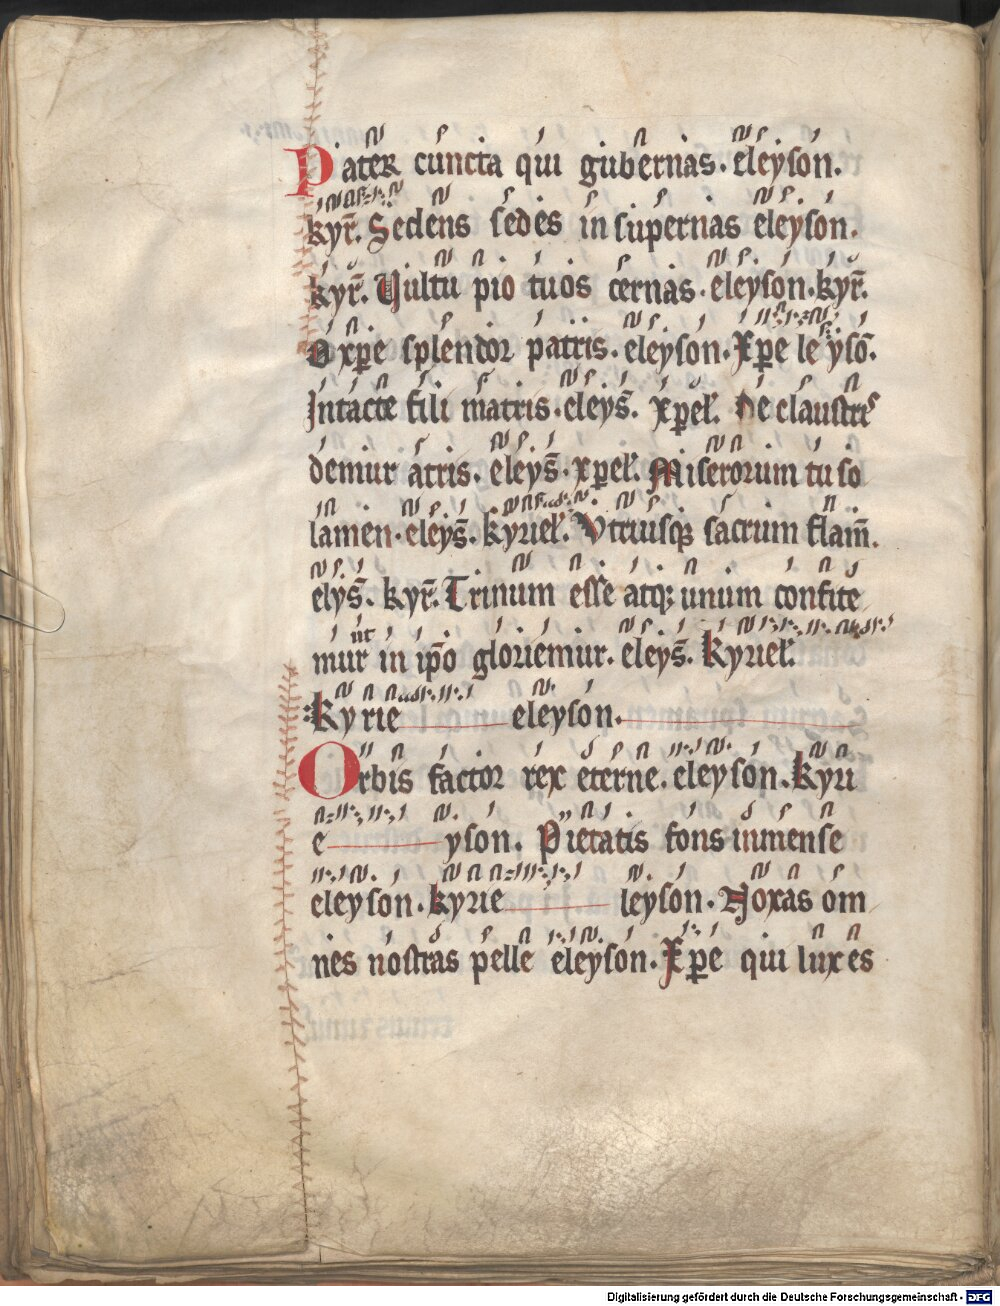 Pater cuncta qui gubernas. eleyson.
kyr̄. Sedens sedes in supernas eleyson.
kyr̄. Uultu pio tuos cernas. eleyson. kyr̄.
O xp̄e splendor patris. eleyson. Xp̄e leysō.
Intacte fili matris. eleys̄. xp̄eł. De claustris
demur atris. eleys̄. xp̄eł. Miserorum tu so
lamen. eleys̄. kyrieł. Vtriusq̄ sacrum flam̄.
elys̄. kyr̄. Trinum esse atq; unum confite
mur ut in ip̄o gloriemur. eleys̄. kyrieł.
kyrie eleyson.
Orbis factor rex eterne. eleyson. kyri
e yson. Pietatis fons inmense
eleyson. kyrie leyson. Noxas om
nes nostras pelle eleyson. Xp̄e qui lux es
Digitalisierung gefördert durch die Deutsche Forschungsgemeinschaft - DFG